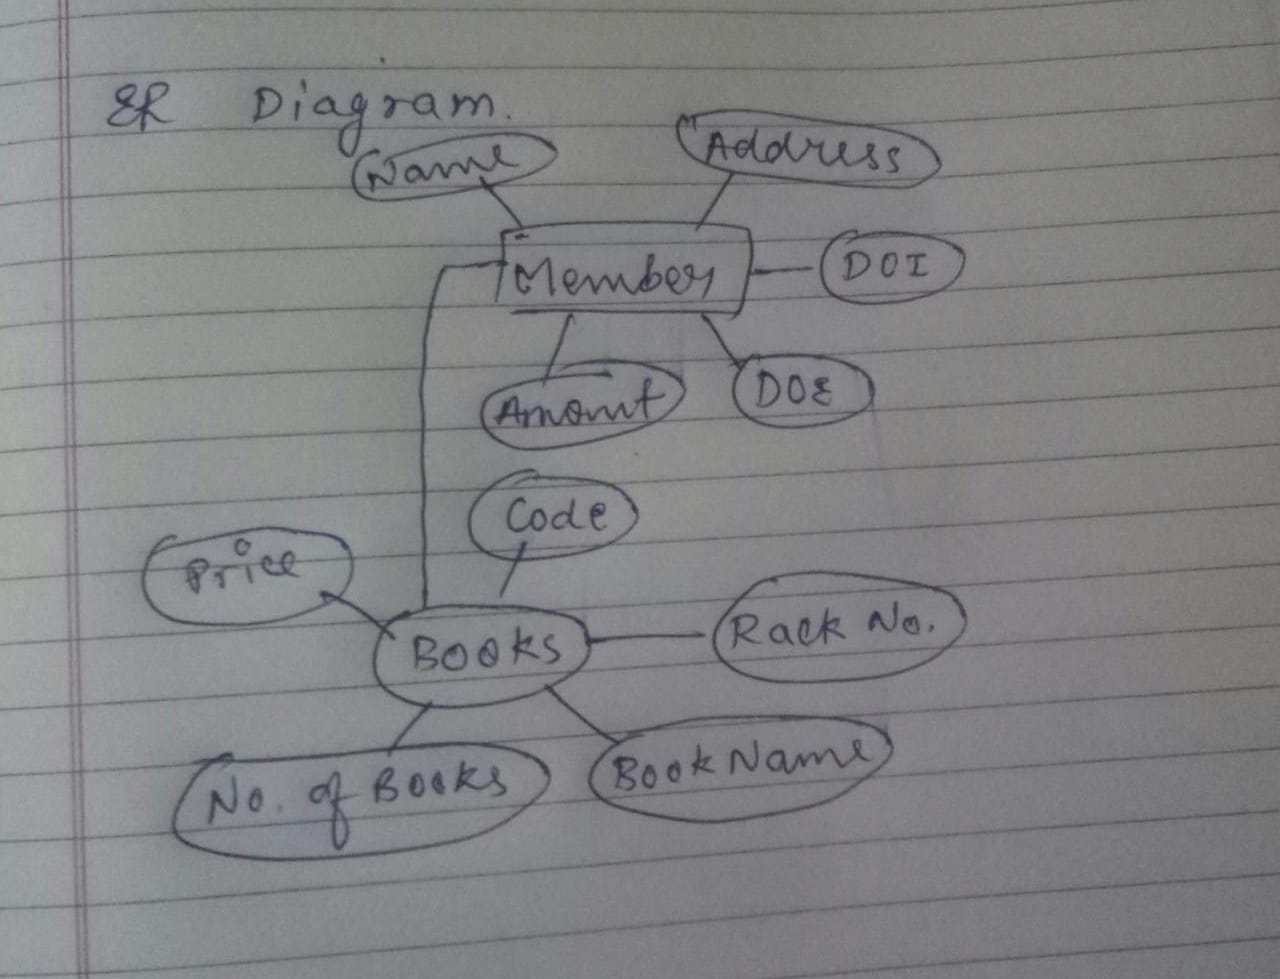 ER Diagram.
Name
Address
Member
DOI
Amount
DOE
Code
Price
Books
Rack No.
No. of Books
Book Name